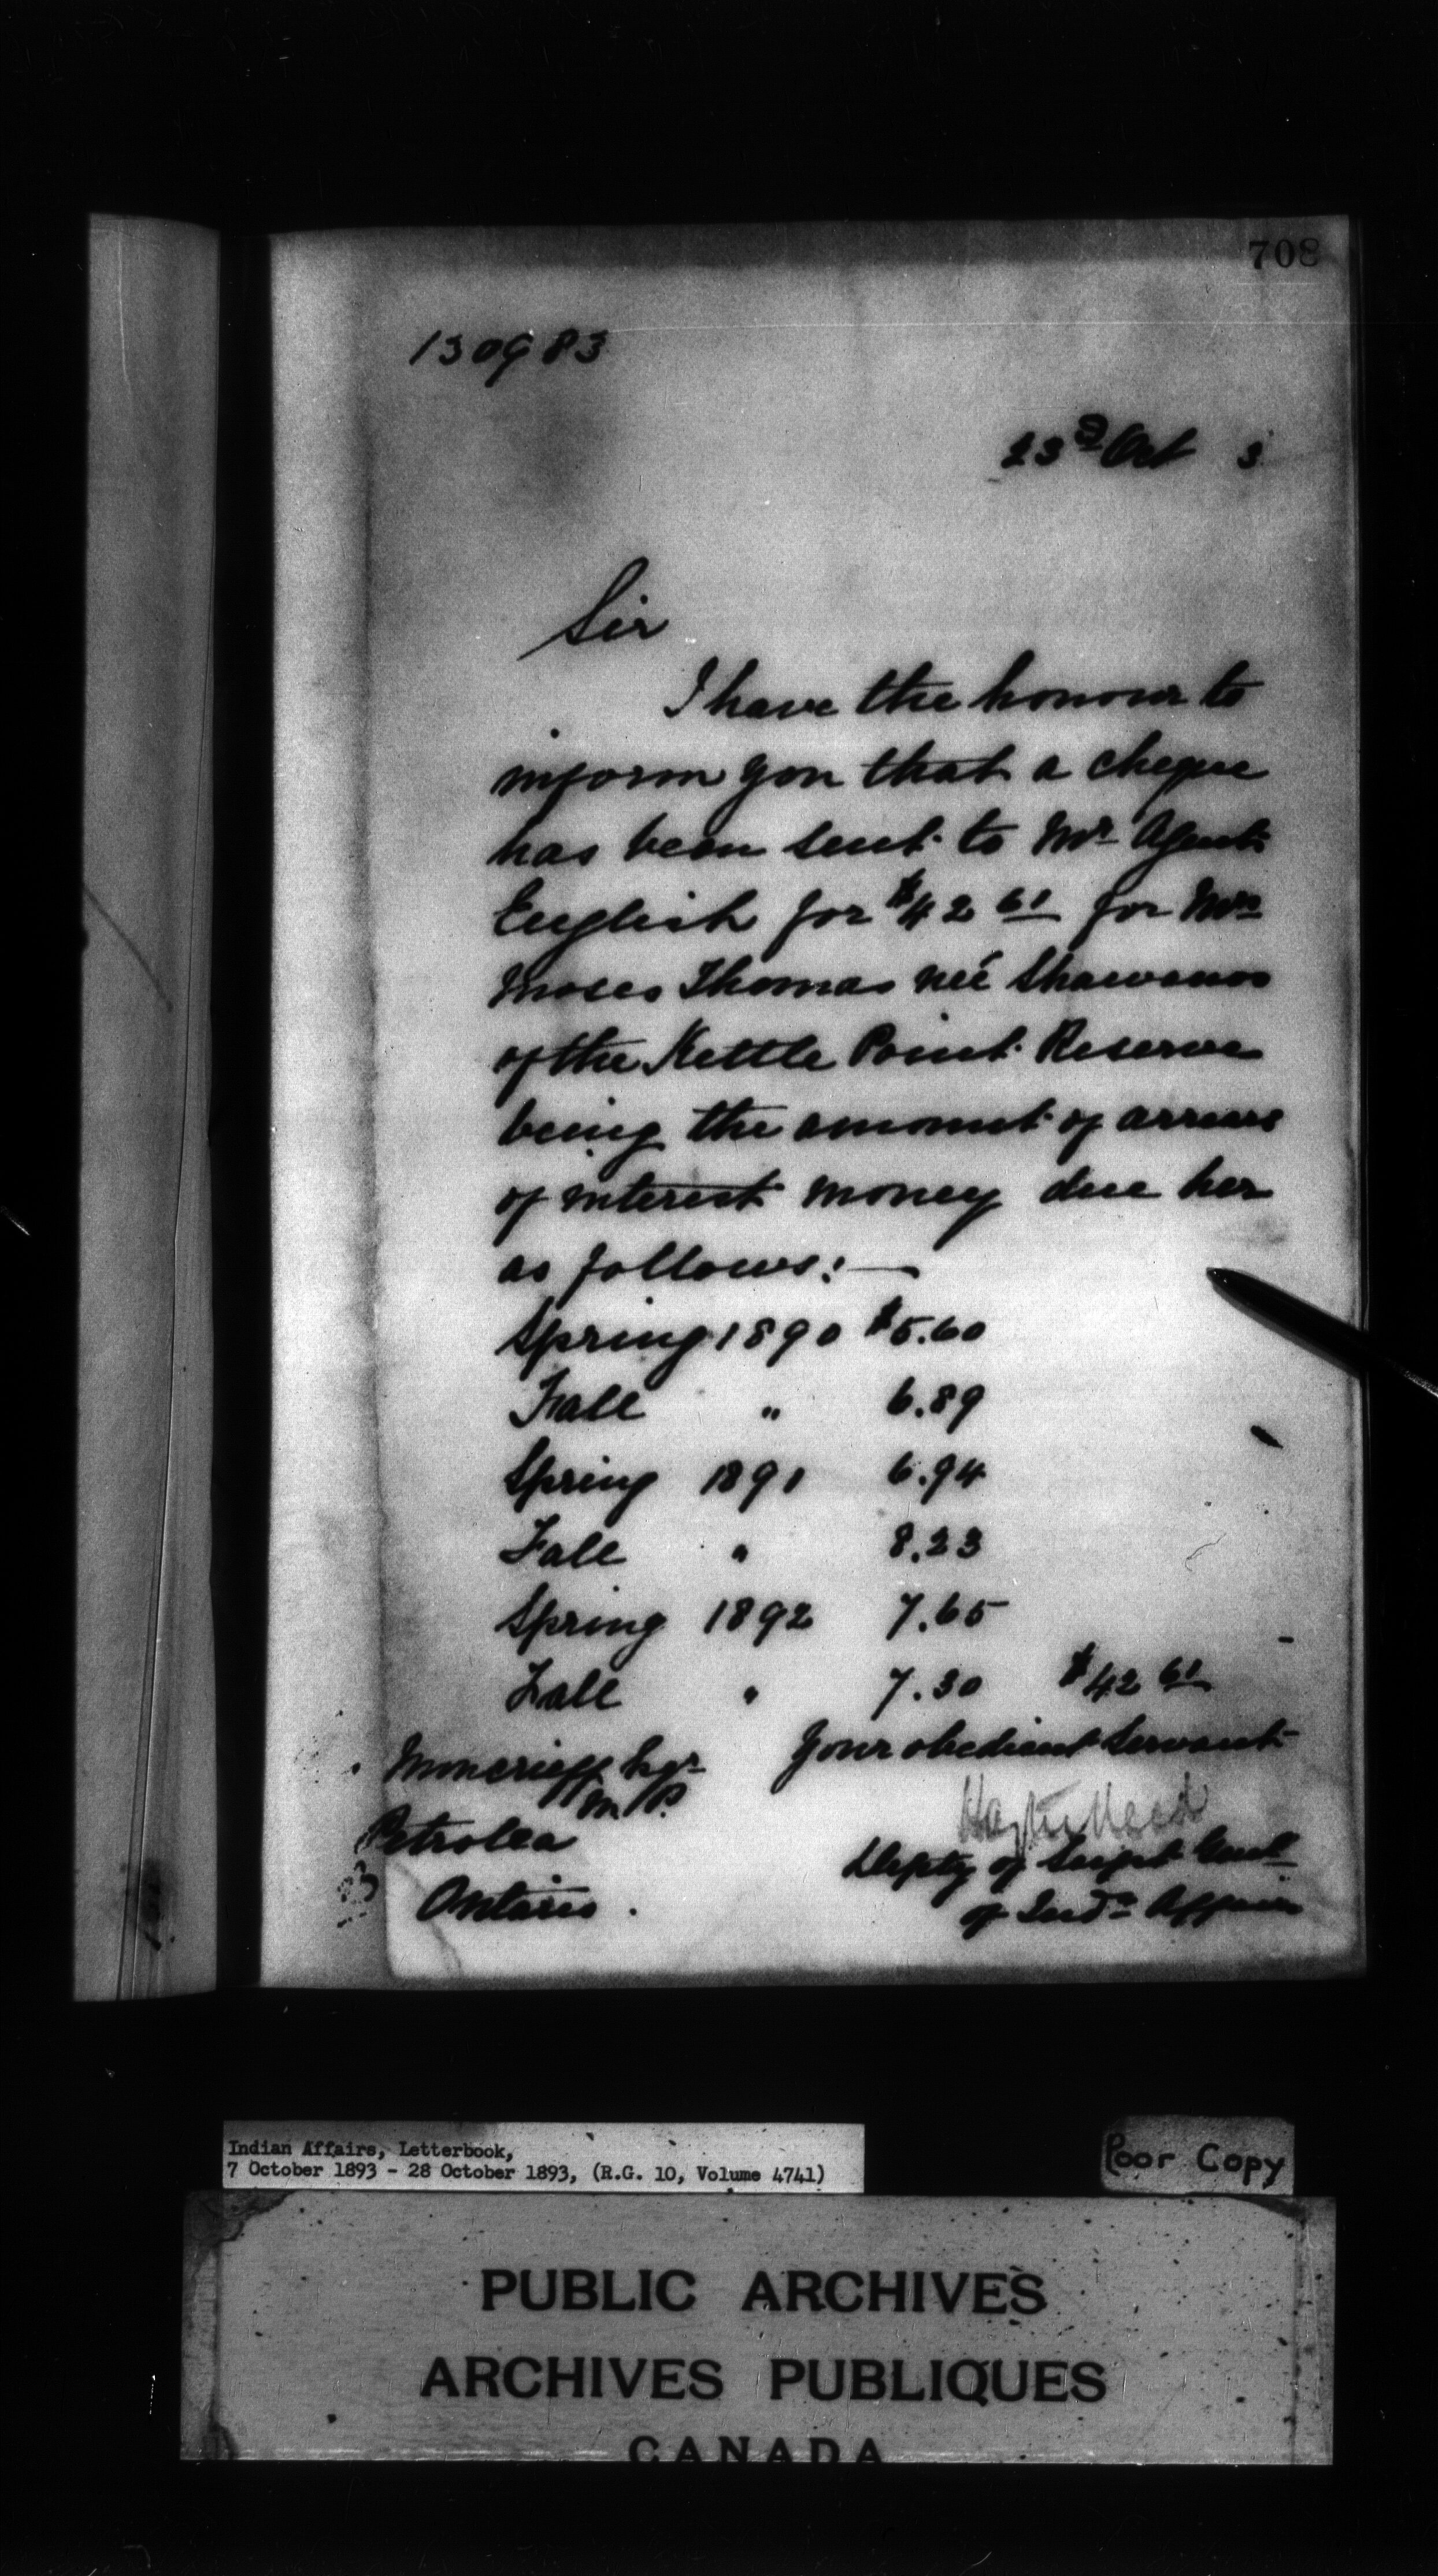 708
130983
23rd Oct 3
Sir
I have the honour to
inform you that a cheque
has been sent to Mr Agent
English for $42 61 for Mrs
Moses Thomas neé Shawanoo
of the Kettle Point Reserve
being the amount of arrears
of interest money due her
as follows:—
Spring 1890 $5.60
Fall " 6.89
Spring 1891 6.94
Fall " 8.23
Spring 1892 7.65
Fall " 7.30 $42 61
Your obedient Servant
Moncrieff Esqr
M.P.
Petrolea
Ontario.
Depty of Supt Genl
of Indn Affairs
Indian Affairs, Letterbook,
7 October 1893 - 28 October 1893, (R.G. 10, Volume 4741)
Poor Copy
PUBLIC ARCHIVES
ARCHIVES PUBLIQUES
CANADA